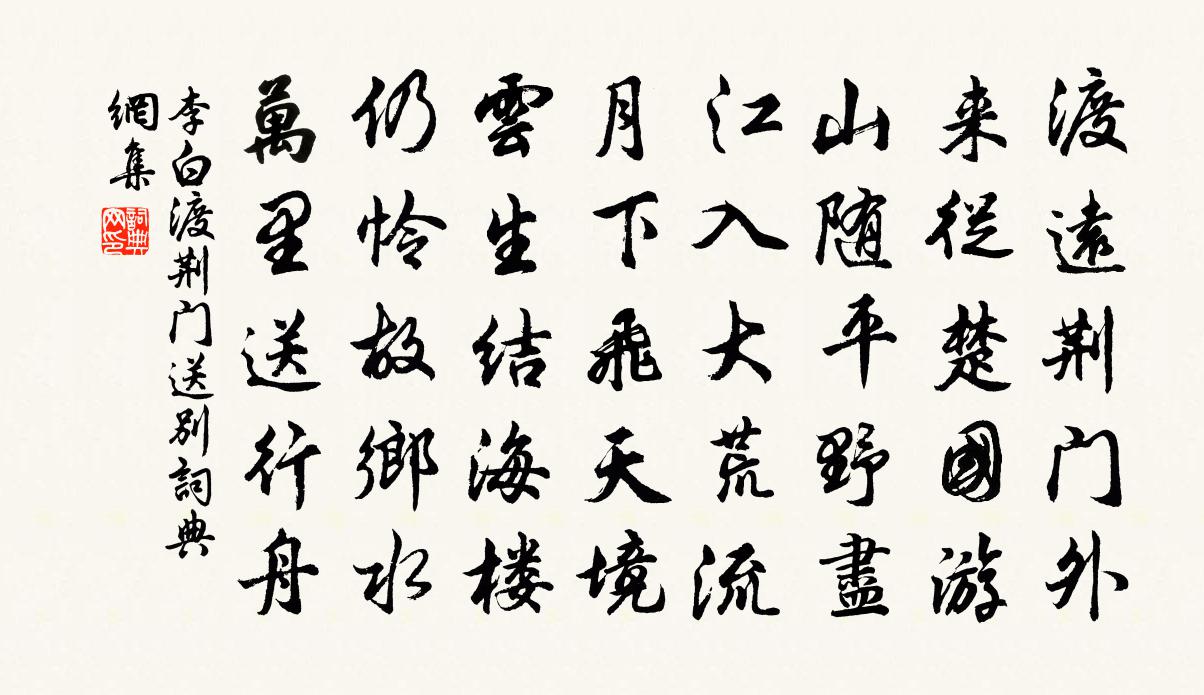 渡遠荆门外
来從楚國游
山随平野盡
江入大荒流
月下飛天境
雲生结海楼
仍怜故鄉水
萬里送行舟
李白渡荆门送别詞典
網集
詞典
网印